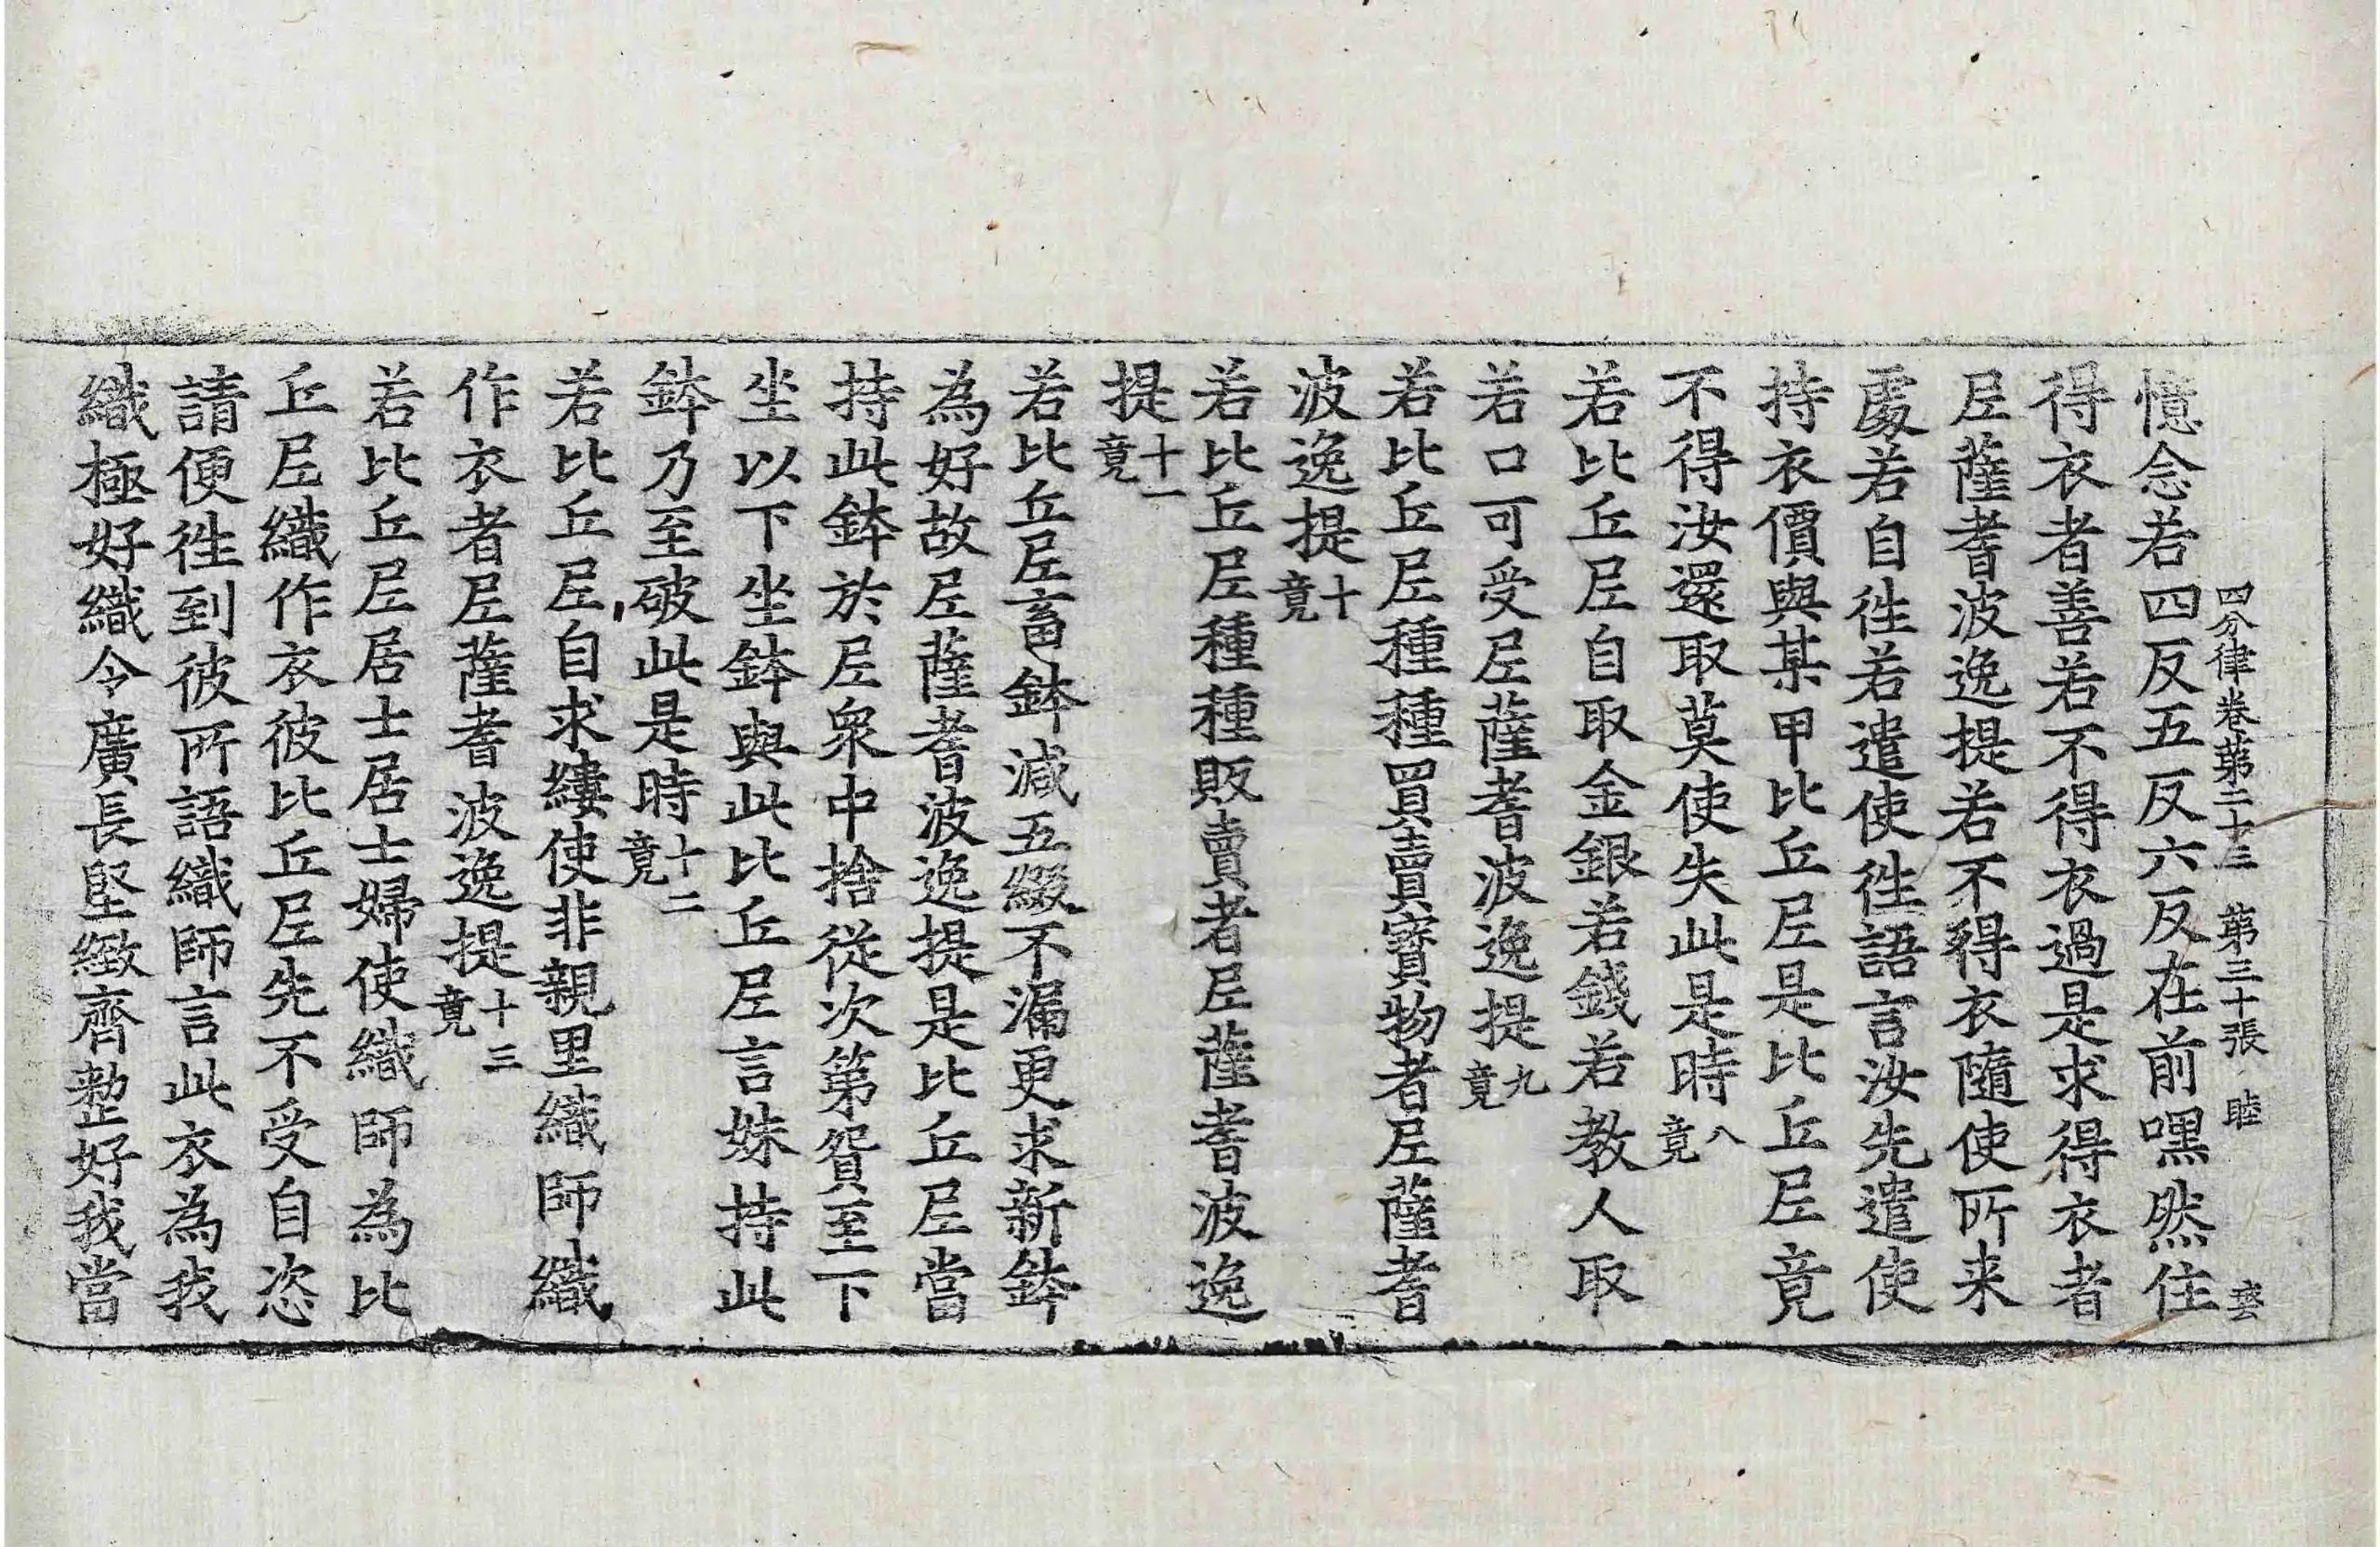 四分律卷第二十三 第三十張 睦
憶念若四反五反六反在前嘿然住
得衣者善若不得衣過是求得衣者
尼薩耆波逸提若不得衣隨使所来
處若自徃若遣使徃語言汝先遣使
持衣價與某甲比丘尼是比丘尼竟
不得汝還取莫使失此是時八竟
若比丘尼自取金銀若錢若教人取
若口可受尼薩耆波逸提九竟
若比丘尼種種買賣寶物者尼薩耆
波逸提十竟
若比丘尼種種販賣者尼薩耆波逸
提十一竟
若比丘尼畜鉢減五綴不漏更求新鉢
為好故尼薩耆波逸提是比丘尼當
持此鉢於尼衆中捨從次第貿至下
坐以下坐鉢與此比丘尼言妹持此
鉢乃至破此是時十二竟
若比丘尼自求縷使非親里織師織
作衣者尼薩耆波逸提十三竟
若比丘尼居士居士婦使織師為比
丘尼織作衣彼比丘尼先不受自恣
請便徃到彼所語織師言此衣為我
織極好織令廣長堅緻齊整好我當